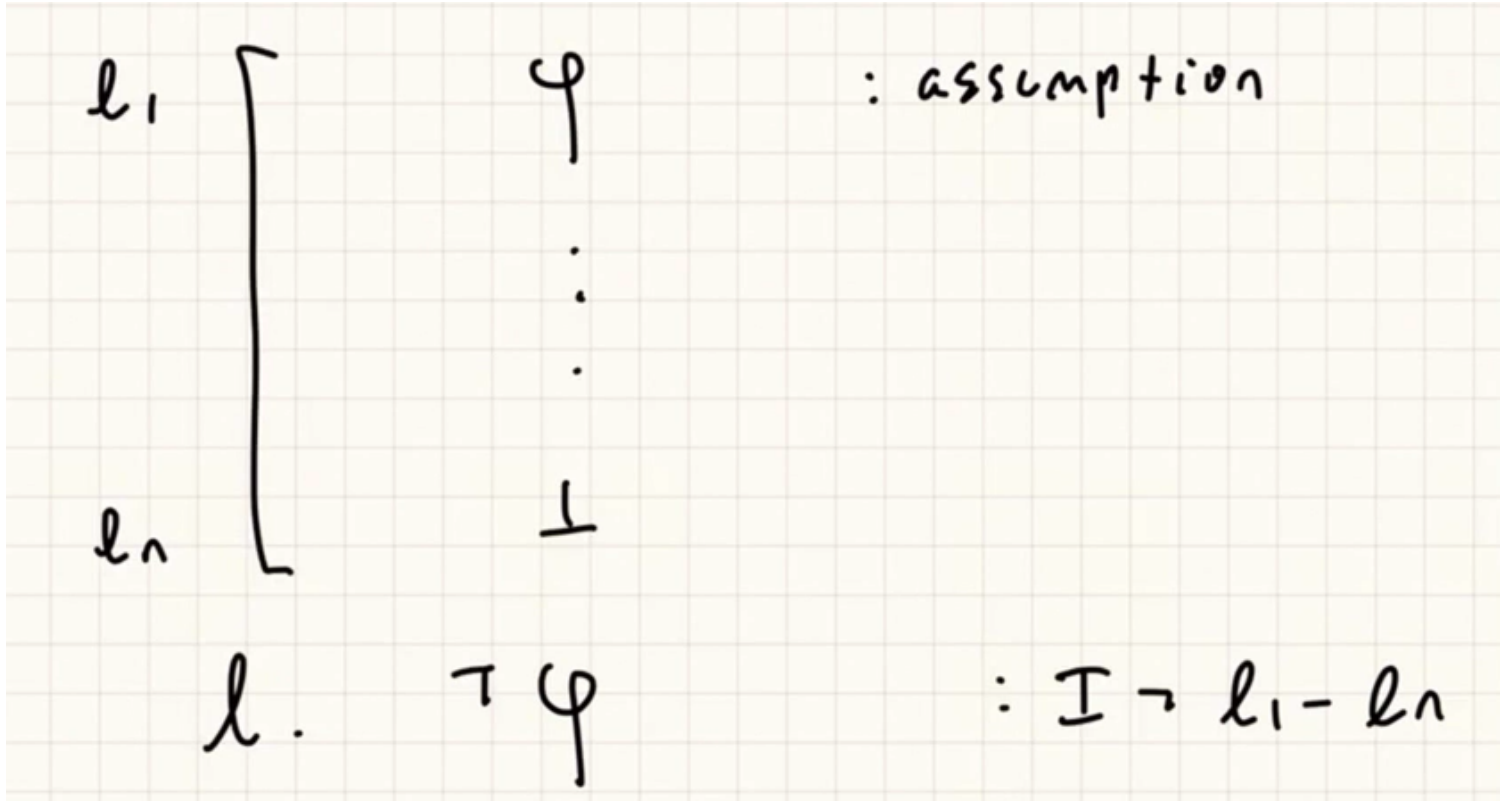 l₁ φ : assumption
.
.
.
lₙ ⊥
l. ¬φ : I¬ l₁ - lₙ